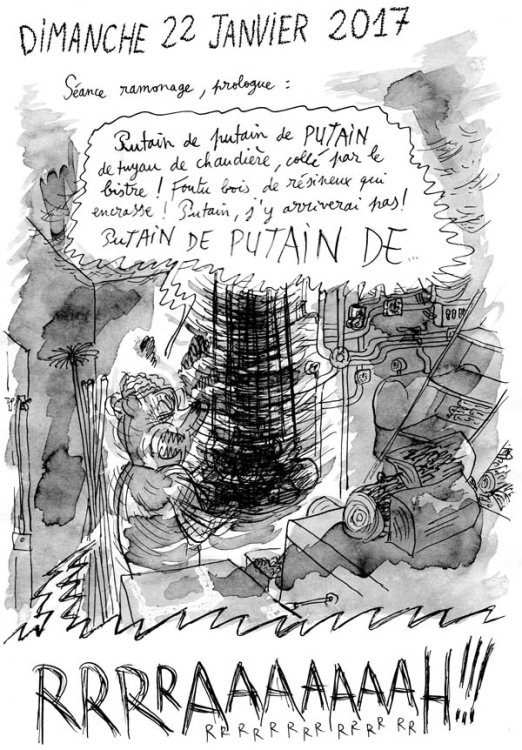 DIMANCHE 22 JANVIER 2017
Séance ramonage, prologue :
Putain de putain de PUTAIN
de tuyau de chaudière, collé par le
bistre ! Foutu bois de résineux qui
encrasse ! Putain, j'y arriverai pas!
PUTAIN DE PUTAIN DE...
RRRRAAAAAAAH!!!
RRRRRRRRRRRR